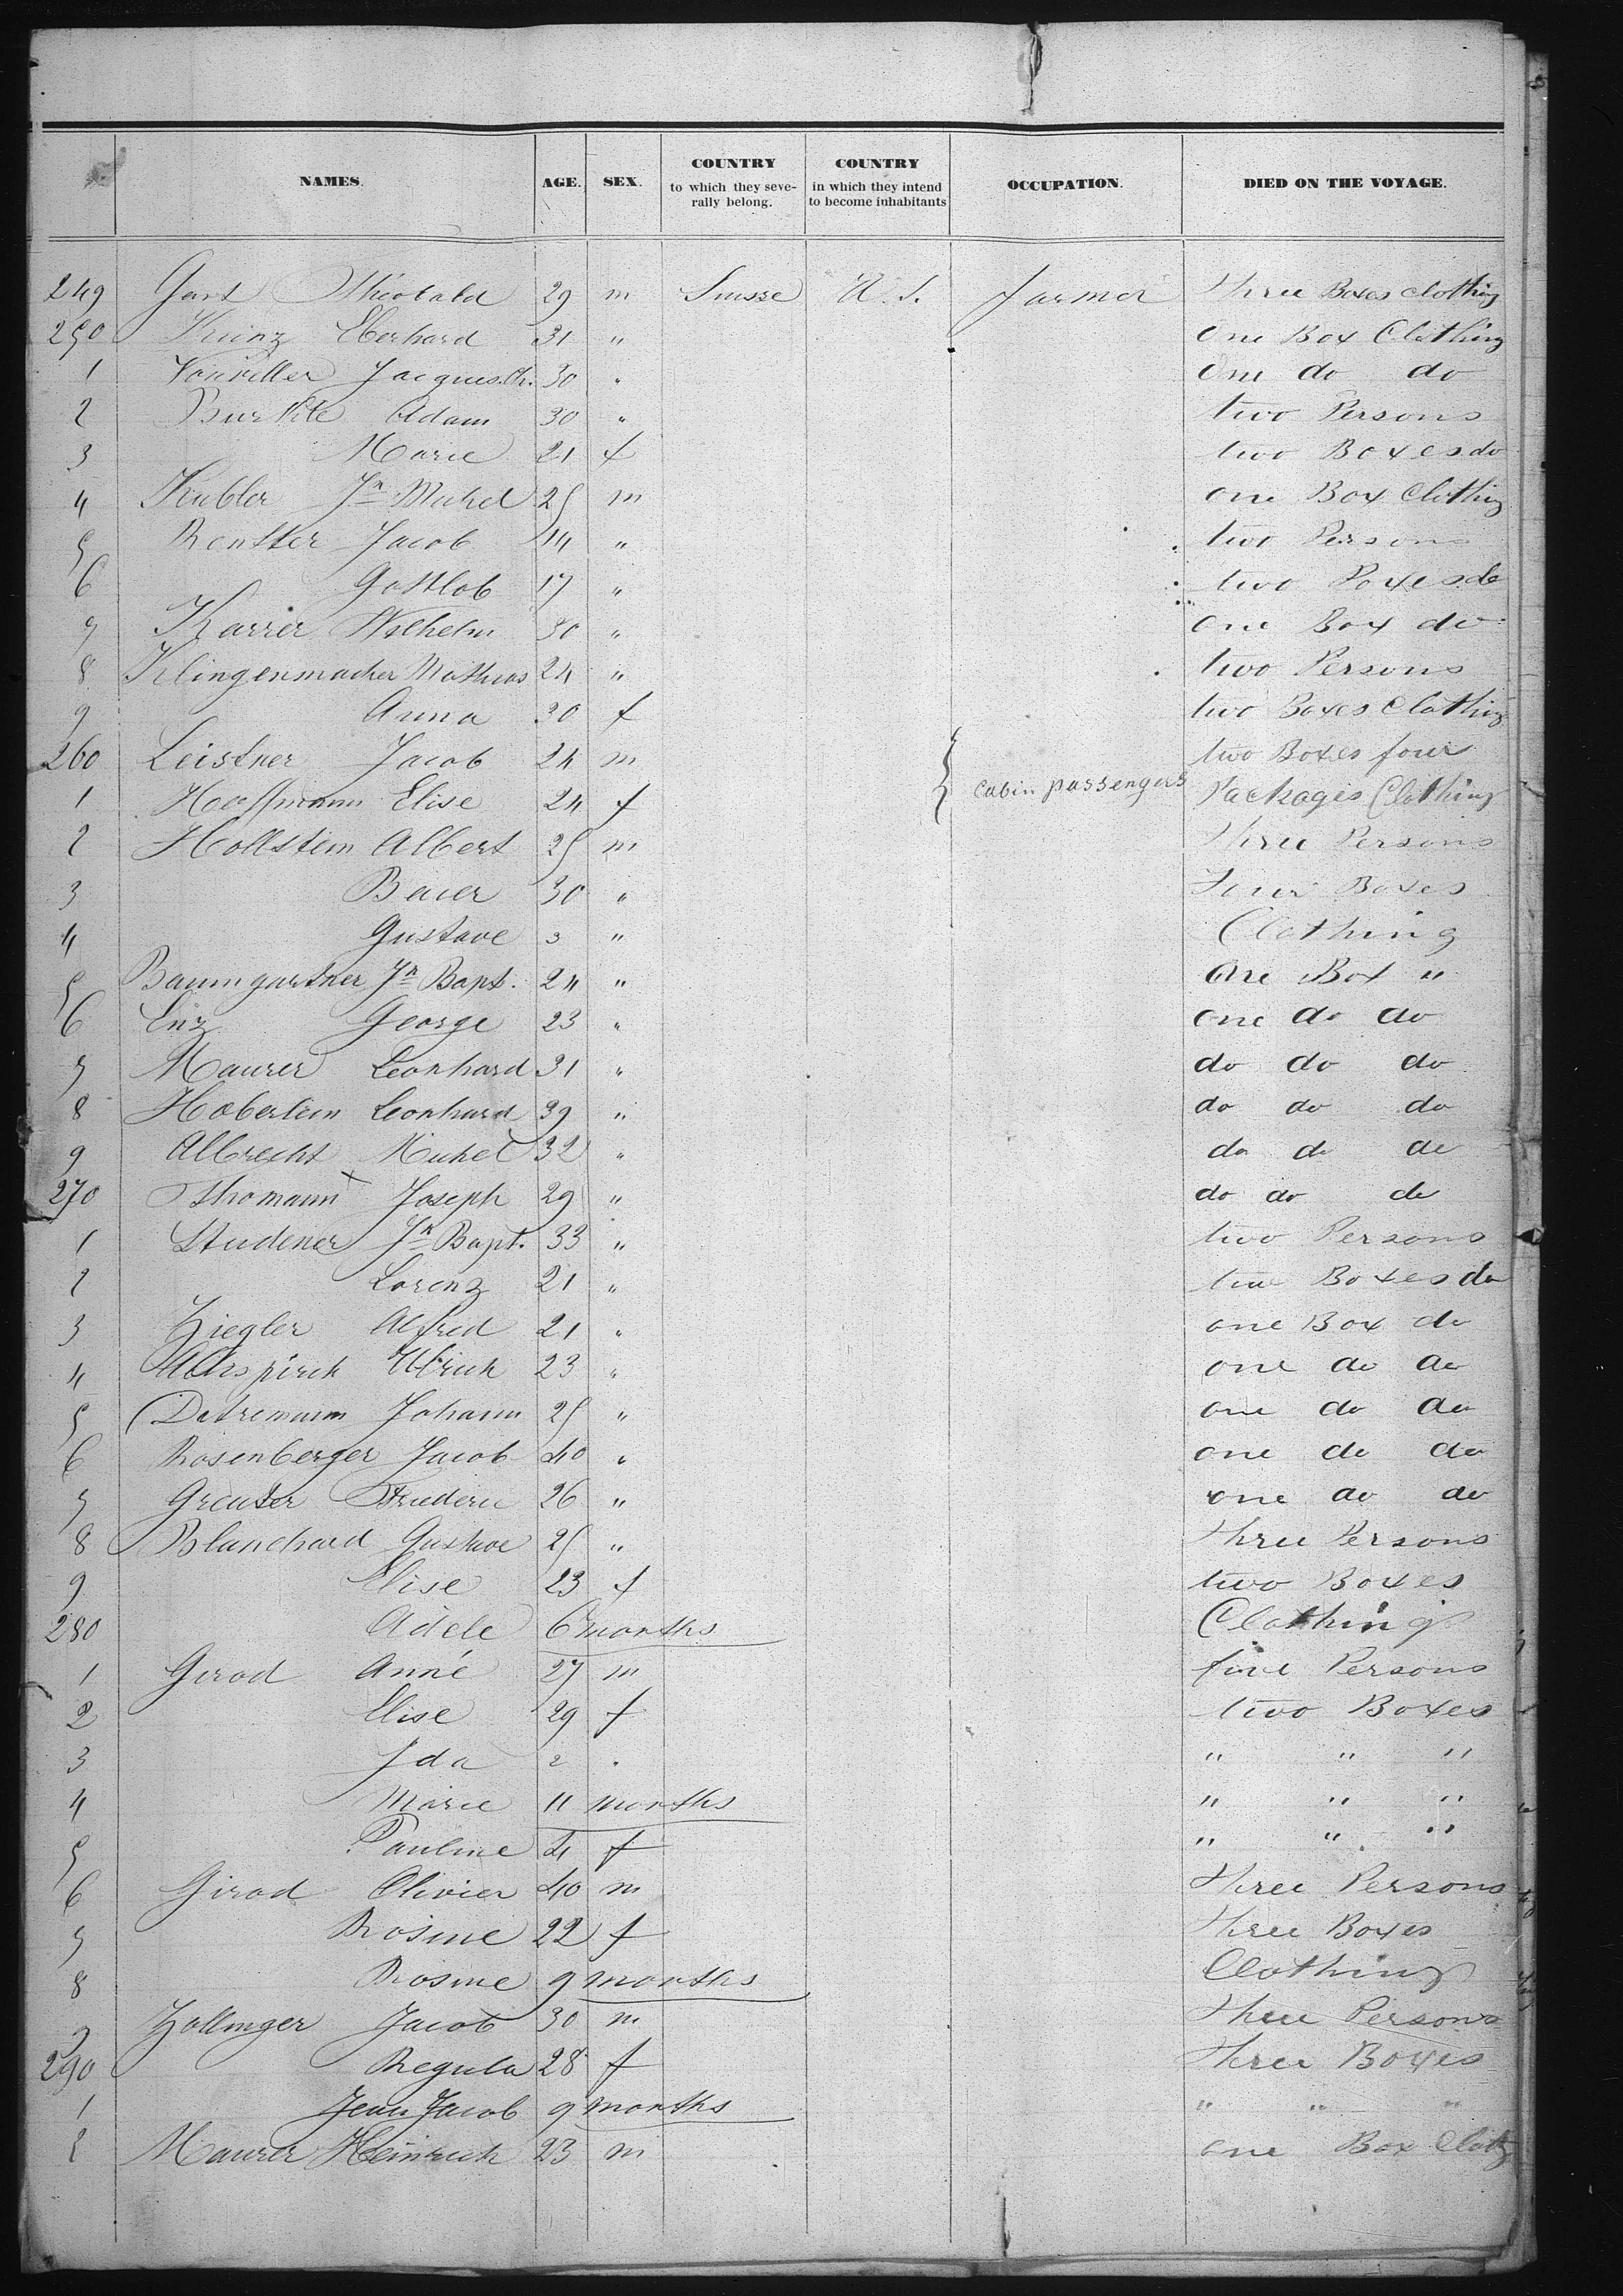 NAMES. AGE. SEX. COUNTRY to which they severally belong. COUNTRY in which they intend to become inhabitants OCCUPATION. DIED ON THE VOYAGE.
249 Theobald 29 m Suisse U.S. Farmer three Boxes clothing
250 Kunz Eberhard 31 " One Box Clothing
1 Jacques 30 " One do do
2 Adam 30 " two Persons
3 Marie 21 f two Boxes do
4 Kubler Jn Michel 25 m one Box Clothing
5 Jacob 14 " two Persons
6 Gottlob 17 " two Boxes do
7 Karrer Wilhelm 30 " One Box do
8 Klingenmacher Mathias 24 " two Persons
9 Anna 30 f two Boxes Clothing
260 Leistner Jacob 24 m two Boxes four
1 Hoffmann Elise 24 f { Cabin passengers Packages Clothing
2 Hollstein Albert 25 m three Persons
3 30 " Four Boxes
4 Gustave 3 " Clothing
5 Baumgartner Jn Bapt. 24 " One Box "
6 Enz George 23 " one do do
7 Maurer Leonhard 31 " do do do
8 Haberlein Leonhard 39 " do do do
9 Albrecht Michel 32 " do do do
270 Thomann x Joseph 29 " do do do
1 Studener Jn Bapt. 33 " two Persons
2 Lorenz 21 " two Boxes do
3 Ziegler Alfred 21 " one Box do
4 Ulrich 23 " one do do
5 Johann 25 " one do do
6 Rosenberger Jacob 40 " one do do
7 Greuter Frederic 26 " one do do
8 Blanchard Gustave 25 " three Persons
9 Elise 23 f two Boxes
280 Adele 6 months Clothing
1 Girod 27 m five Persons
2 Elise 29 f two Boxes
3 Ida 2 " " " "
4 Marie 11 months " " "
5 Pauline 4 f " " "
6 Girod Olivier 40 m three Persons
7 Rosine 22 f three Boxes
8 Rosine 9 months Clothing
9 Zollinger Jacob 30 m three Persons
290 Regula 28 f three Boxes
1 Jean Jacob 9 months " " "
2 Maurer Heinrich 23 m one Box Clothg